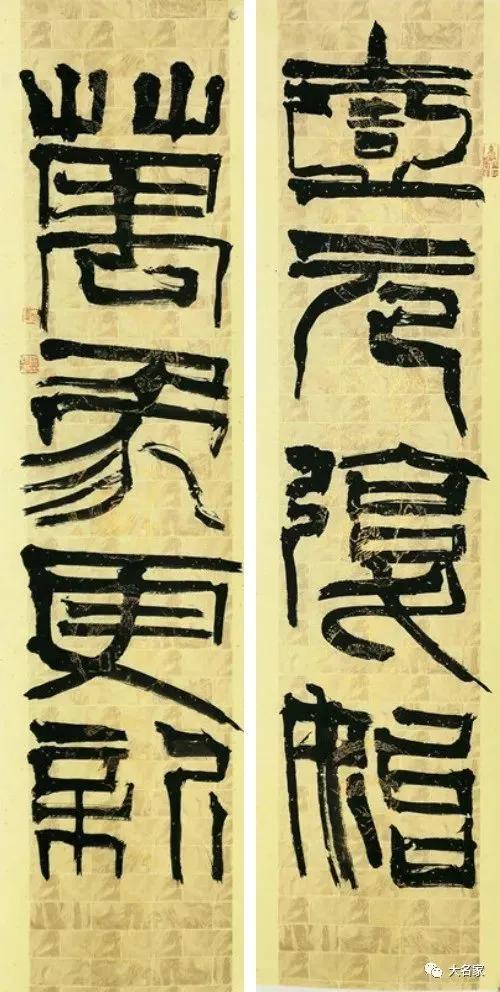 壹元復始
萬象更新
大名家